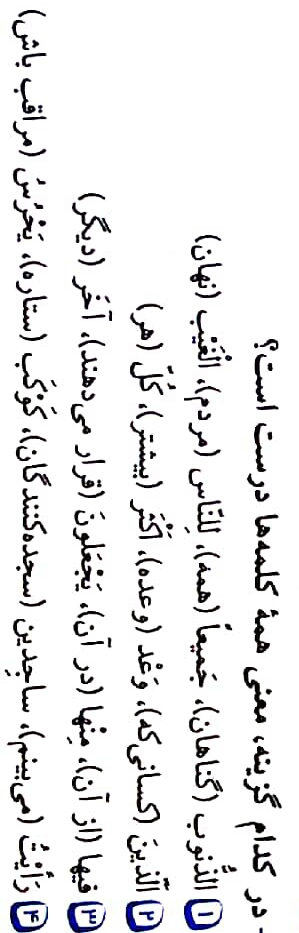 - در کدام گزینه، معنی همهٔ کلمه‌ها درست است؟
۱ الذُّنوب (گناهان)، جَمیعاً (همه)، لِلنّاس (مردم)، الْغَیْب (نهان)
۲ اَلّذینَ (کسانی‌که)، وَعْد (وعده)، اَکْثَر (بیشتر)، کُلّ (هر)
۳ فیها (از آن)، مِنْها (در آن)، یَجْعَلونَ (قرار می‌دهند)، آخَر (دیگر)
۴ رَأیْتُ (می‌بینم)، ساجِدین (سجده‌کنندگان)، کَوْکَب (ستاره)، یَحْرُسُ (مراقب باش)